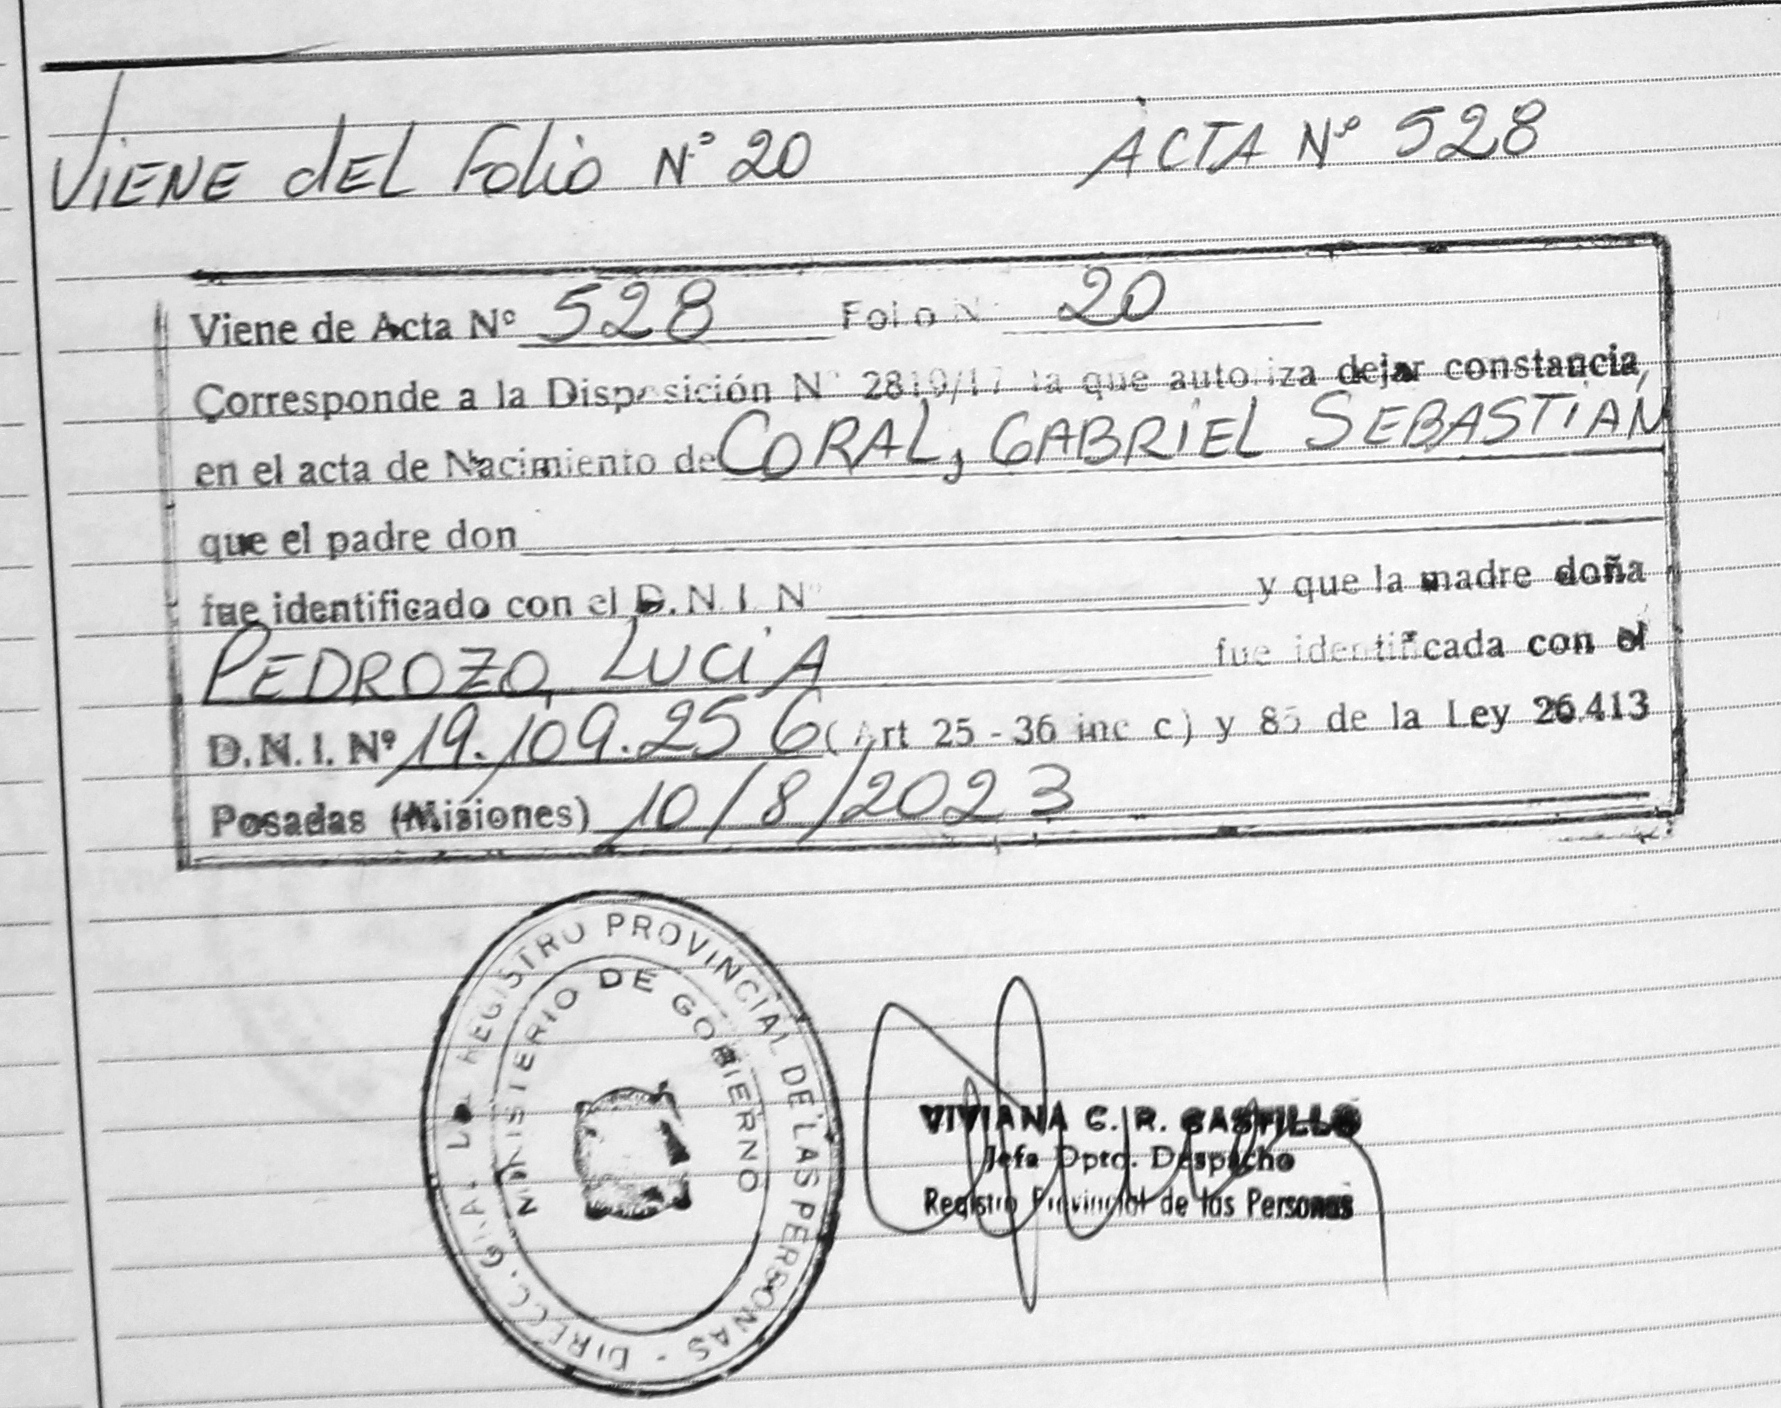 VIENE dEL Folio N° 20 ACTA N° 528
Viene de Acta Nº 528 Folio N° 20
Corresponde a la Disposición N° 2819/17 la que autoriza dejar constancia,
en el acta de Nacimiento de CORAL, GABRIEL SEBASTIAN
que el padre don
fue identificado con el D.N.I. N° y que la madre doña
PEDROZO, LUCIA fue identificada con el
D.N.I. Nº 19.109.256 (Art 25 - 36 inc c) y 85 de la Ley 26.413
Posadas (Misiones) 10/8/2023
REGISTRO PROVINCIAL DE LAS PERSONAS - DIRECC. GRAL.
MINISTERIO DE GOBIERNO
VIVIANA C. R. CASTILLO
Jefa Dpto. Despacho
Registro Provincial de las Personas